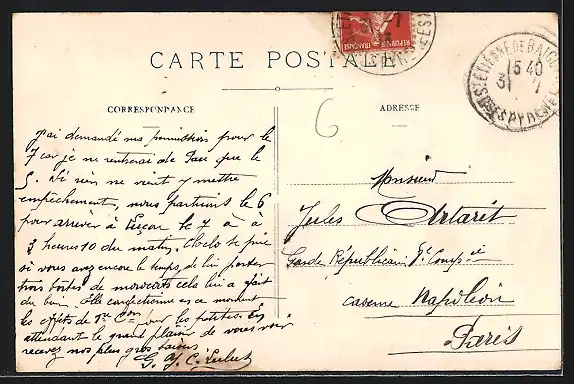 CARTE POSTALE
REPUBLIQUE
FRANÇAISE
ST ETIENNE DE BAIGO
15 40
31 7
BSES PYRENEES
CORRESPONDANCE
ADRESSE
6
J'ai demandé ma permission pour le
7 car je ne rentrerai de Pau que le
5. Si rien ne vient y mettre
empêchement, nous partirons le 6
pour arriver à le 7 à
3 heures 10 du matin. te prie
si vous avez encore le temps, de lui porter
trois boites de cela lui a fait
du bien. Elle confectionne en ce moment
les effets de pour les petites. En
attendant le grand plaisir de vous voir
recevez nos plus gros baisers
G. Y. C.
Monsieur
Jules Artarit
Garde Républicain Cie
caserne Napoléon
Paris